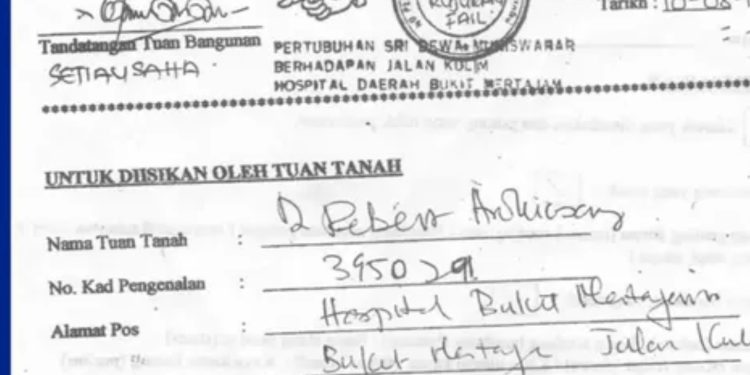 RUJUKAN
FAIL.
Tarikh : 10-08-
Tandatangan Tuan Bangunan
SETIAUSAHA.
PERTUBUHAN SRI DEWA MUNISWARAR
BERHADAPAN JALAN KULIM
HOSPITAL DAERAH BUKIT MERTAJAM
UNTUK DIISIKAN OLEH TUAN TANAH
Nama Tuan Tanah : D Robert
No. Kad Pengenalan : 3950291
Alamat Pos : Hospital Bukit Mertajam
Bukit Mertajam Jalan Kul